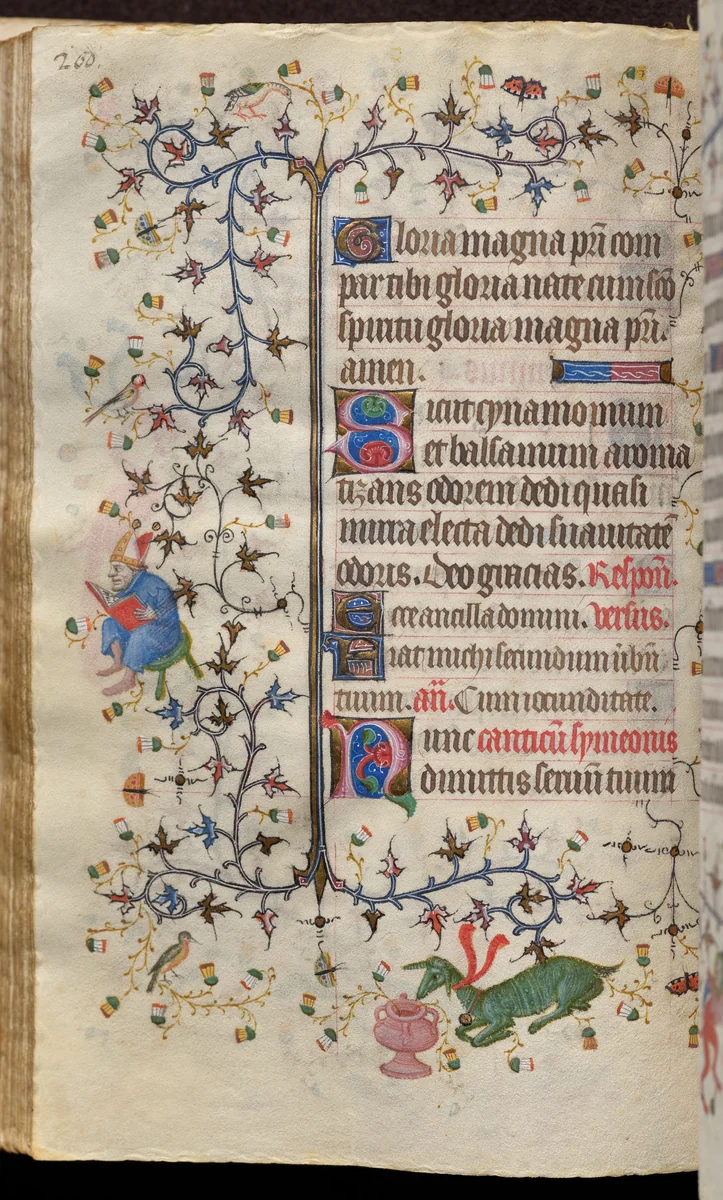 260.
Gloria magna pr̄i com
par tibi gloria nate cum sc̄o
spiritu gloria magna pr̄i.
amen.
Sicut cynamomum
et balsamum aroma
tizans odorem dedi quasi
mirra electa dedi suauitatē
odoris. Deo gracias. Respon̄.
Ecce ancilla domini. Versus.
Fiat michi secundum ūbū
tuum. an̄. Cum iocunditate.
Nunc canticū symeonis
dimittis seruū tuum